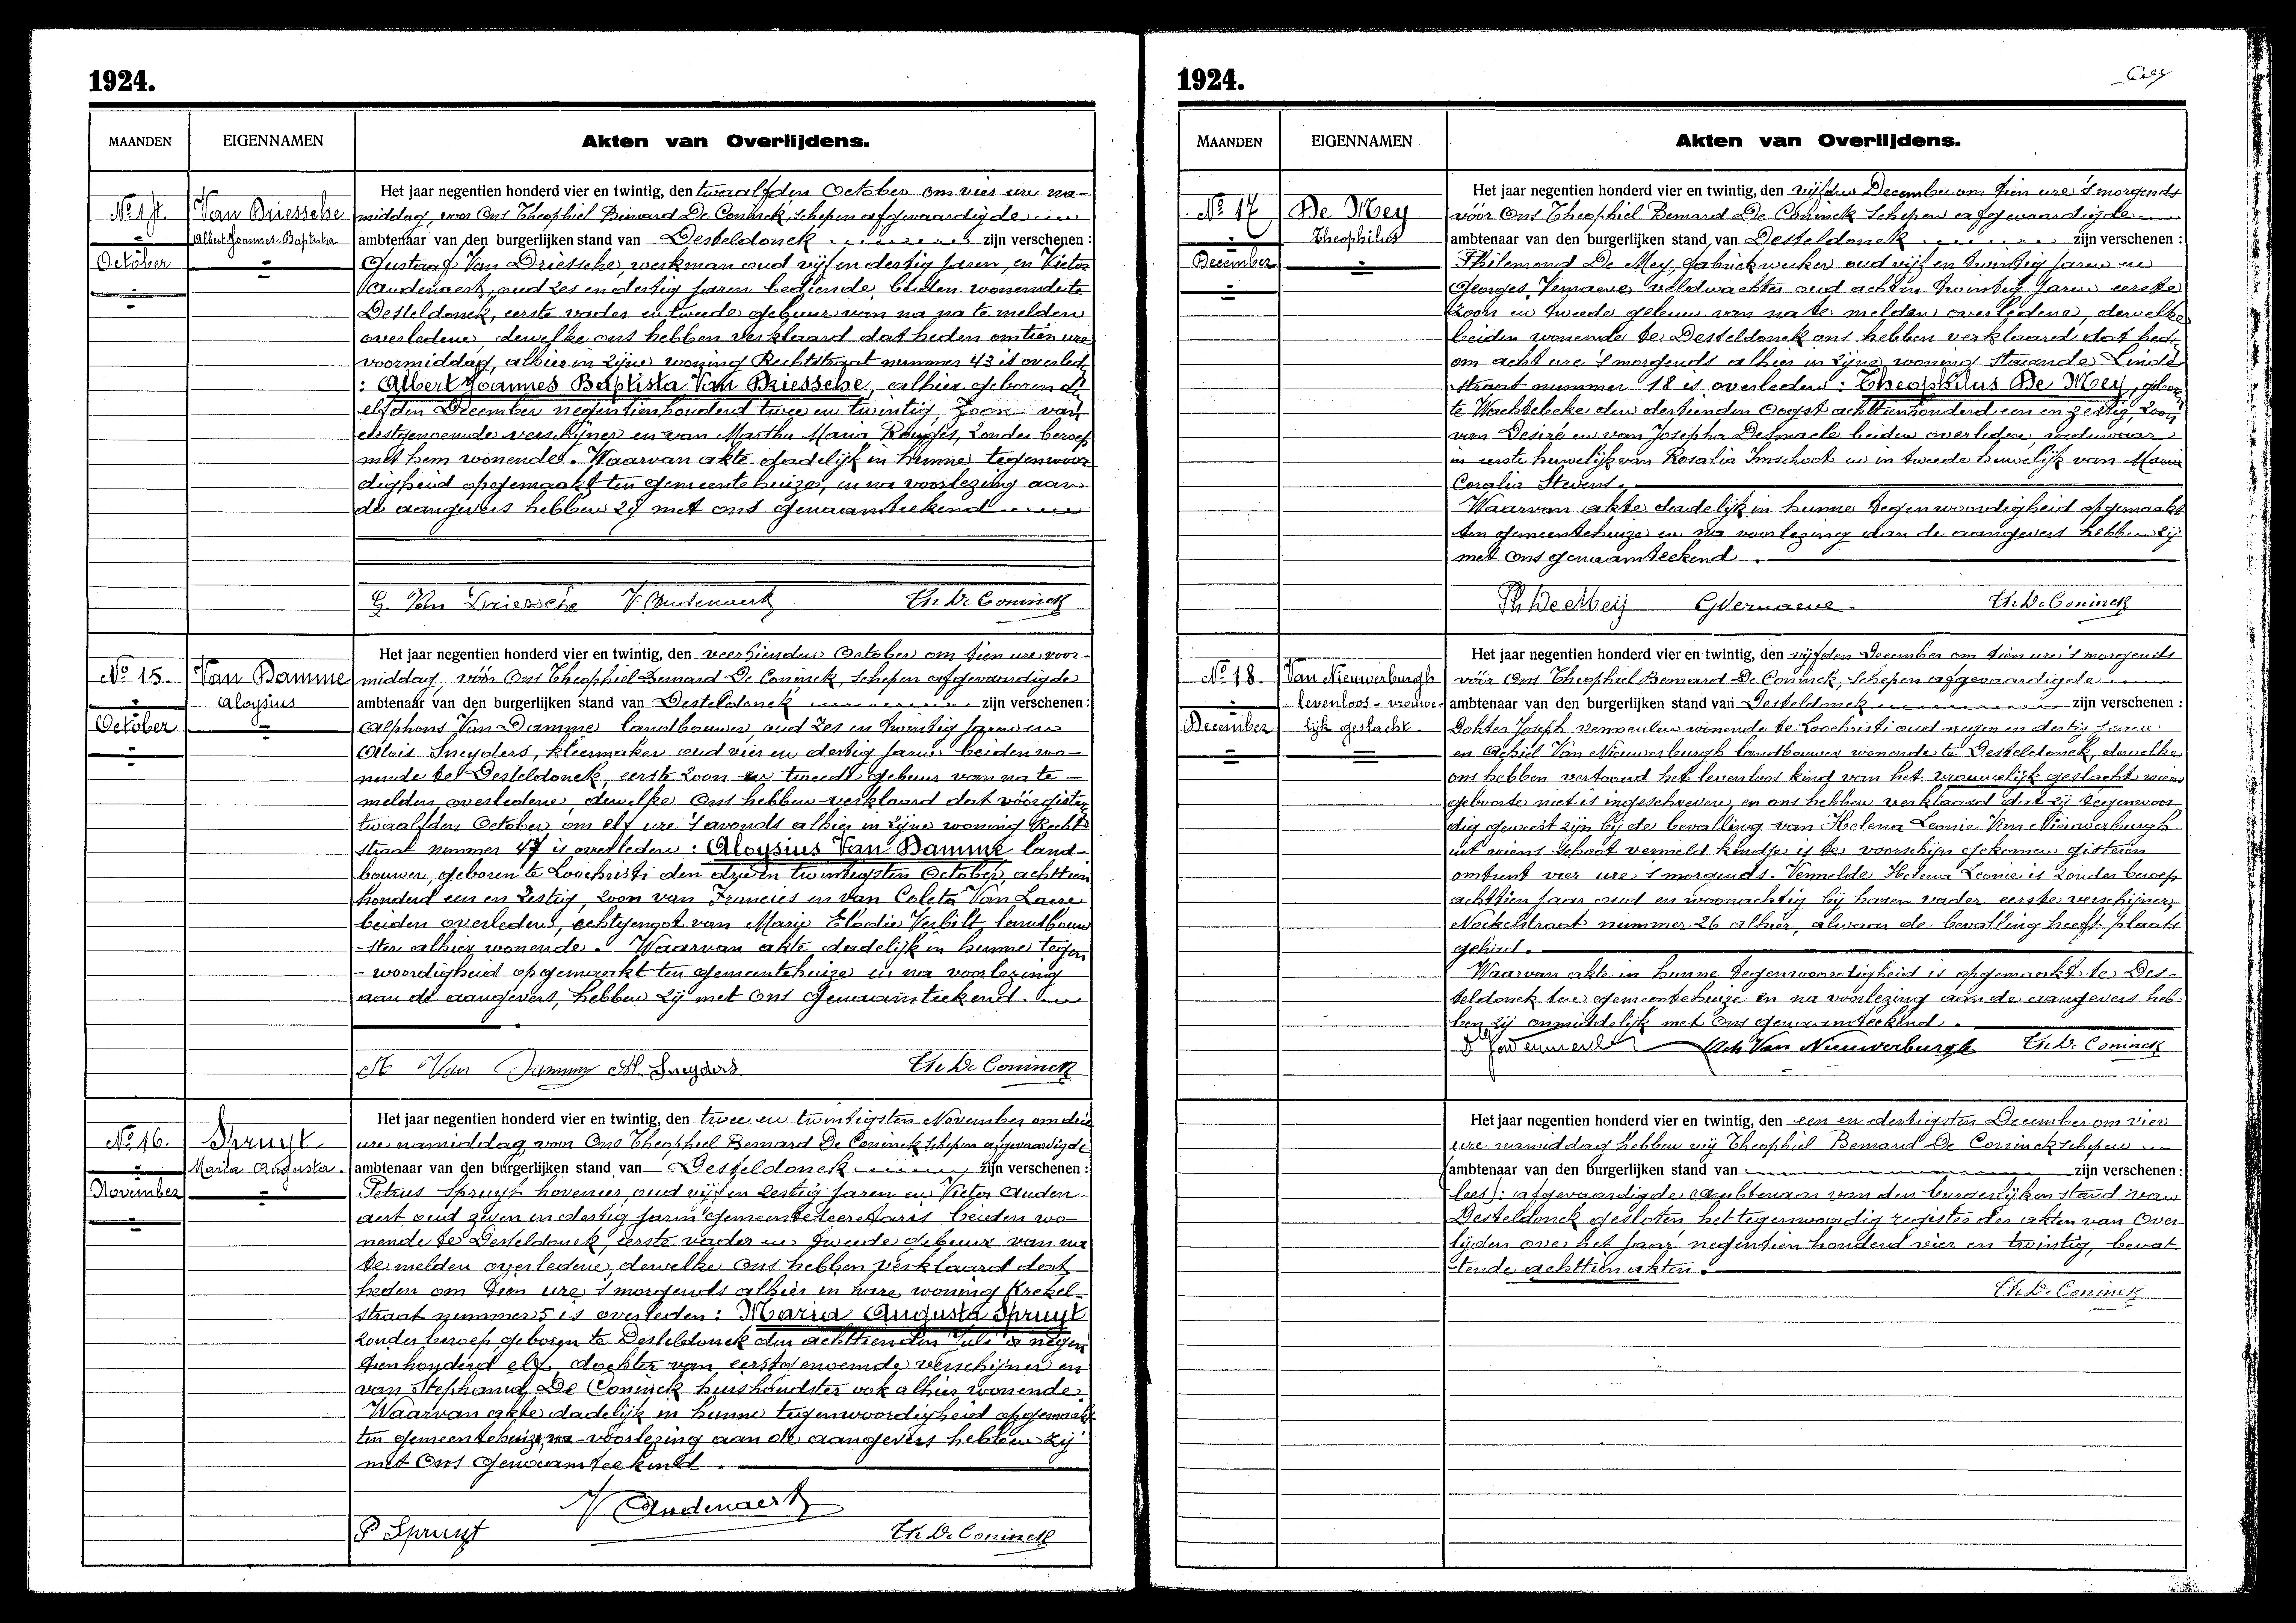 1924.
MAANDEN
EIGENNAMEN
Akten van Overlijdens.
No 14.
October
Van Driessche
Albert Joannes Baptista
Het jaar negentien honderd vier en twintig, den twaalfden October om vier ure na-
middag, voor Ons Theophiel Bernard De Coninck, schepen afgevaardigde
ambtenaar van den burgerlijken stand van Desteldonck zijn verschenen :
Gustaaf Van Driessche, werkman oud vijf en dertig jaren, en Victor
Audenaert, oud zes en dertig jaren bediende, beiden wonende te
Desteldonck, eerste vader en tweede gebuur van na na te melden
overledene, dewelke ons hebben verklaard dat heden om tien ure
voormiddag, alhier in zijne woning Rechtstraat nummer 43 is overled.
: Albert Joannes Baptista Van Driessche, alhier geboren den
elfden December negentienhonderd twee en twintig, zoon van
eerstgenoemde verschijner en van Martha Maria, zonder beroep
met hem wonende. Waarvan akte dadelijk in hunne tegenwoor-
digheid opgemaakt ten gemeentehuize, en na voorlezing aan
de aangevers hebben zij met ons genaamteekend
G. Van Driessche V. Audenaert Th. De Coninck
No 15.
October
Van Damme
Aloysius
Het jaar negentien honderd vier en twintig, den veertienden October om tien ure voor-
middag, vóór Ons Theophiel Bernard De Coninck, schepen afgevaardigde
ambtenaar van den burgerlijken stand van Desteldonck zijn verschenen :
Alphons Van Damme landbouwer, oud zes en twintig jaren en
Alois Sneyders, kleermaker oud vier en dertig jaren beiden wo-
nende te Desteldonck, eerste zoon en tweede gebuur van na te
melden overledene, dewelke Ons hebben verklaard dat vóórgister
twaalfden October om elf ure 's avonds alhier in zijne woning Recht-
straat nummer 47 is overleden : Aloysius Van Damme land-
bouwer, geboren te Loochristi den drie en twintigsten October, achttien
honderd een en zestig, zoon van Francies en van Coleta Van Laere
beiden overleden, echtgenoot van Marie Elodie Verbilt, landbouw
-ster alhier wonende. Waarvan akte dadelijk in hunne tegen
- woordigheid opgemaakt ten gemeentehuize en na voorlezing
aan de aangevers, hebben zij met Ons genaamteekend.
A Van Damme Al. Sneyders Th. De Coninck
No 16.
November
Spruyt
Maria Augusta.
Het jaar negentien honderd vier en twintig, den twee en twintigsten November om drie
ure namiddag, voor Ons Theophiel Bernard De Coninck schepen afgevaardigde
ambtenaar van den burgerlijken stand van Desteldonck zijn verschenen :
Petrus Spruyt hovenier, oud vijf en zestig jaren en Victor Auden-
aert oud zeven en dertig jaren gemeentesecretaris beiden wo-
nende te Desteldonck, eerste vader en tweede gebuur van na
te melden overledene, dewelke Ons hebben verklaard dat
heden om tien ure 's morgends alhier in hare woning Krekel-
straat nummer 5 is overleden : Maria Augusta Spruyt
zonder beroep geboren te Desteldonck den achttienden Juli negen
tienhonderd elf, dochter van eerstgenoemde verschijner en
van Stephanie De Coninck huishoudster ook alhier wonende.
Waarvan akte dadelijk in hunne tegenwoordigheid opgemaakt
ten gemeentehuize, na voorlezing aan de aangevers hebben zij
met Ons genaamteekend.
V Audenaert
P Spruyt Th. De Coninck
1924.
MAANDEN
EIGENNAMEN
Akten van Overlijdens.
No 17
December
De Mey
Theophilus
Het jaar negentien honderd vier en twintig, den vijfden December om tien ure 's morgends
vóór Ons Theophiel Bernard De Coninck Schepen afgevaardigde
ambtenaar van den burgerlijken stand van Desteldonck zijn verschenen :
Philemond De Mey, fabriekwerker oud vijf en twintig jaren en
Georges Vernaeve veldwachter oud acht en twintig jaren eerste
zoon en tweede gebuur van na te melden overledene, dewelke
beiden wonende te Desteldonck ons hebben verklaard dat hed.
om acht ure 's morgends alhier in zijne woning staande Linde
straat nummer 18 is overleden : Theophilus De Mey, geboren
te Wachtebeke den dertienden Oogst achttienhonderd een en zestig, zoon
van Desiré en van Josepha Desmaele beiden overleden, weduwaar
in eerste huwelijk van Rosalia Imschoot en in tweede huwelijk van Marie
Coralie Stevens.
Waarvan akte dadelijk in hunne tegenwoordigheid opgemaakt
ten gemeentehuize en na voorlezing aan de aangevers hebben zij
met Ons genaamteekend.
Ph De Meij G Vernaeve. Th. De Coninck
No 18
December
Van Nieuwerburgh
levenloos - vrouwe-
lijk geslacht.
Het jaar negentien honderd vier en twintig, den vijfden December om tien ure 's morgends
vóór Ons Theophiel Bernard De Coninck, schepen afgevaardigde
ambtenaar van den burgerlijken stand van Desteldonck zijn verschenen :
Dokter Joseph Vermeulen wonende te Loochristi oud negen en dertig jaren
en Achiel Van Nieuwerburgh landbouwer wonende te Desteldonck, dewelke
ons hebben vertoond het levenloos kind van het vrouwelijk geslacht wiens
geboorte niet is ingeschreven, en ons hebben verklaard dat zij tegenwoor
dig geweest zijn bij de bevalling van Helena Leonie Van Nieuwerburgh
uit wiens schoot vermeld kindje is te voorschijn gekomen gisteren
omtrent vier ure 's morgends. Vermelde Helena Leonie is zonder beroep
achttien jaar oud en woonachtig bij haren vader eerste verschijner,
Nockelstraat nummer 26 alhier, alwaar de bevalling heeft plaats
gehad.
Waarvan akte in hunne tegenwoordigheid is opgemaakt te Des-
teldonck ten gemeentehuize en na voorlezing aan de aangevers heb-
ben zij onmiddelijk met Ons genaamteekend.
Ach Van Nieuwerburgh Th. De Coninck
Het jaar negentien honderd vier en twintig, den een en dertigsten December om vier
ure namiddag hebben wij Theophiel Bernard De Coninck schepen
ambtenaar van den burgerlijken stand van zijn verschenen :
(lees): afgevaardigde ambtenaar van den burgerlijken stand van
Desteldonck gesloten het tegenwoordig register der akten van Over
lijden over het jaar negentien honderd vier en twintig, bevat
-tende achttien akten.
Th. De Coninck